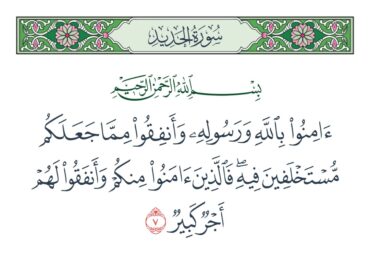 سُورَةُ الحَدِيدِ
بِسْمِ اللَّهِ الرَّحْمَٰنِ الرَّحِيمِ
ءَامِنُوا۟ بِٱللَّهِ وَرَسُولِهِۦ وَأَنفِقُوا۟ مِمَّا جَعَلَكُم
مُّسْتَخْلَفِينَ فِيهِۖ فَٱلَّذِينَ ءَامَنُوا۟ مِنكُمْ وَأَنفَقُوا۟ لَهُمْ
أَجْرٌ كَبِيرٌ ٧